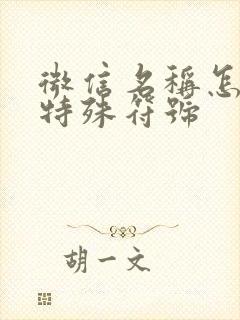 微信名稱怎
特殊符號
胡一文